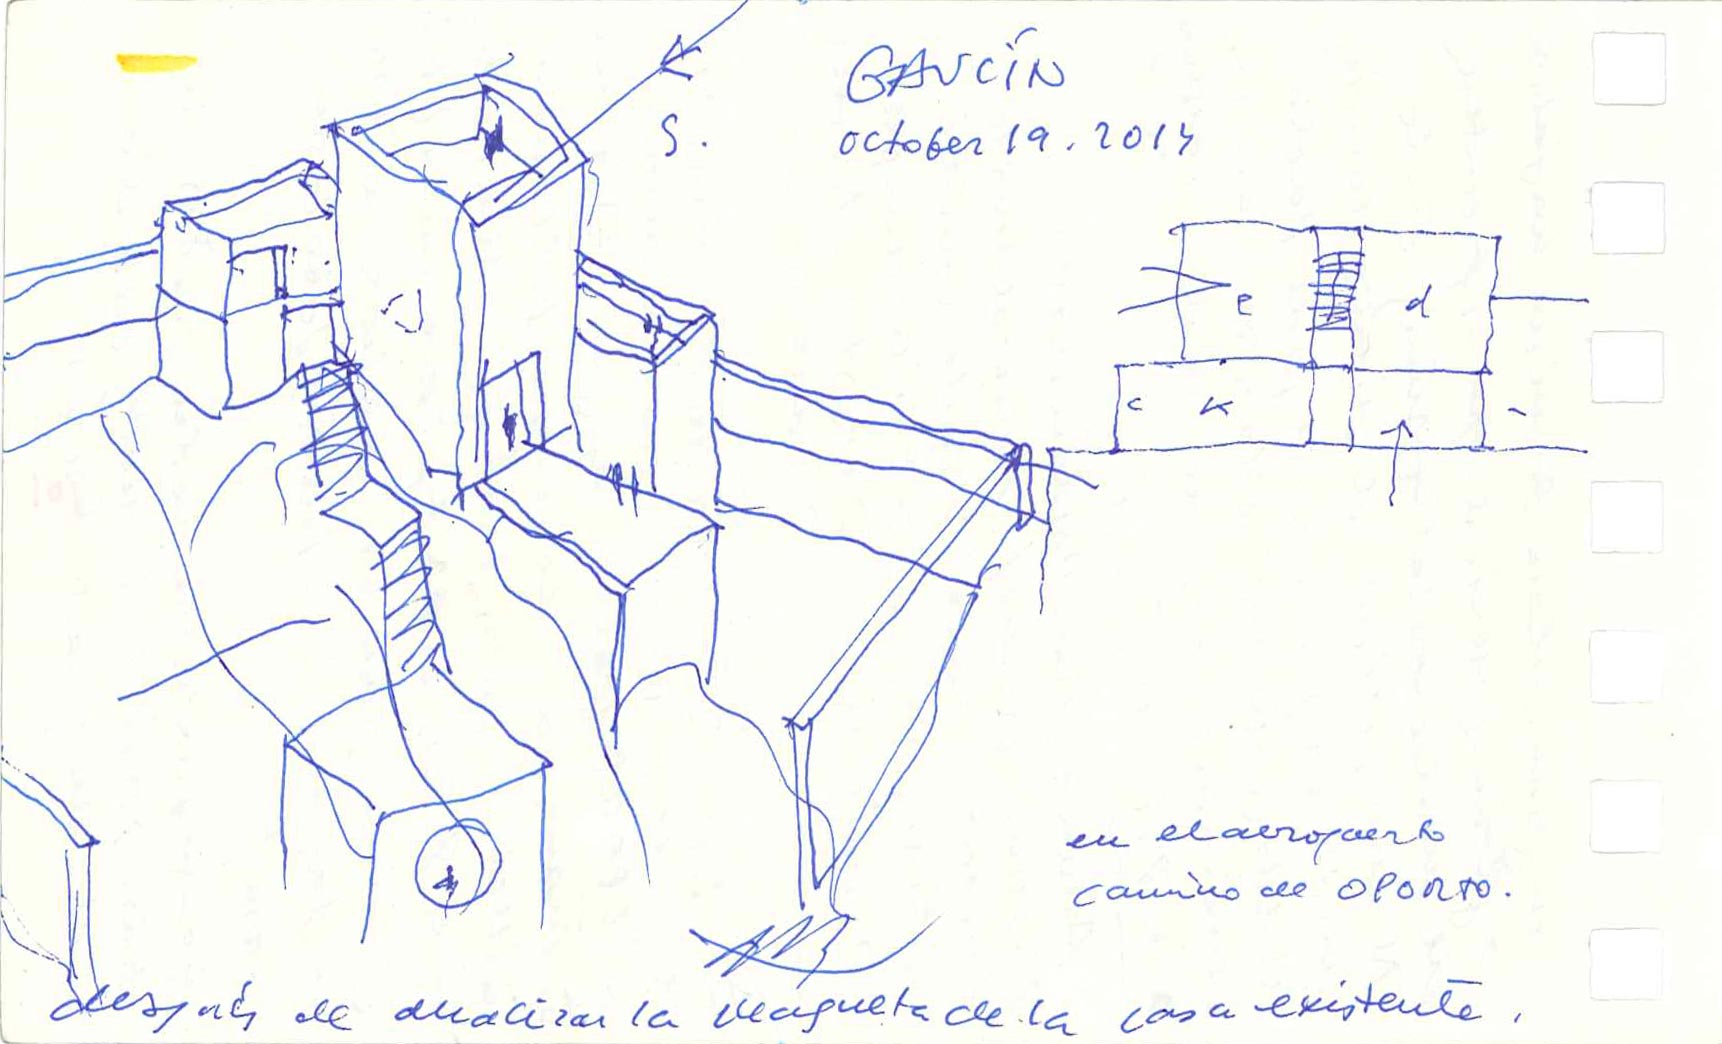 GAUCÍN
S.
october 19. 2014
e
d
c K
en el aeropuerto
camino de OPORTO.
después de analizar la maqueta de la casa existente.